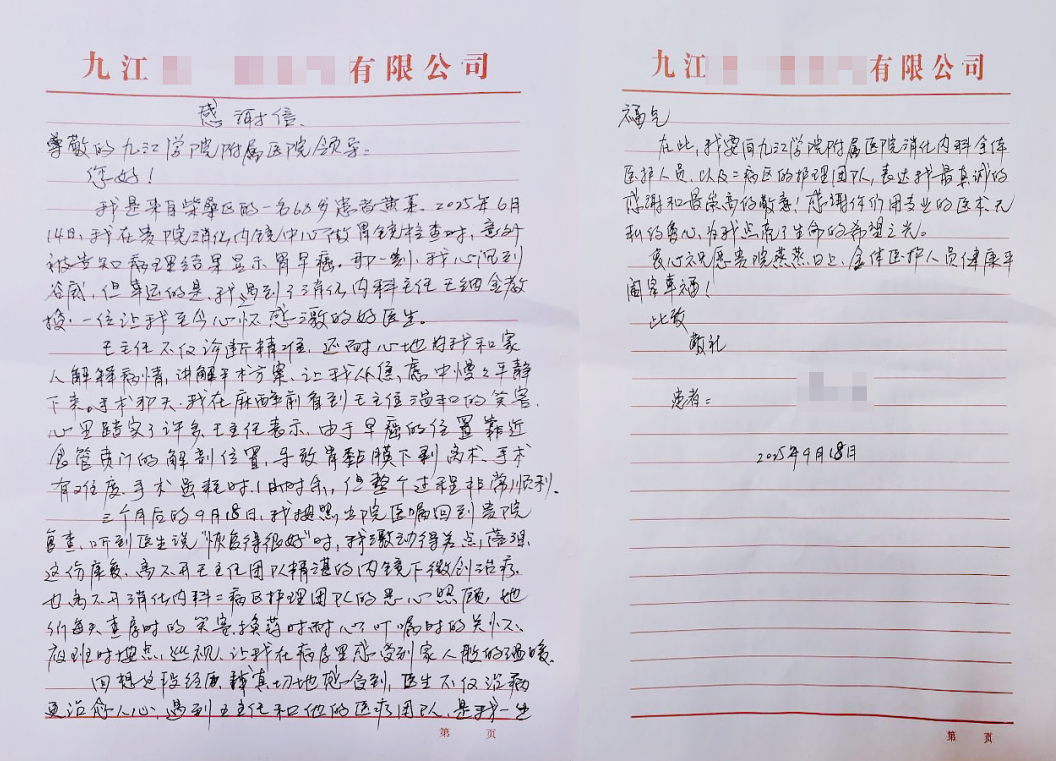 九江 有限公司
感谢信
尊敬的九江学院附属医院领导：
您好！
我是来自柴桑区的一名68岁患者黄某。2025年6月
14日，我在贵院消化内镜中心做胃镜检查时，意外
被告知病理结果显示胃早癌。那一刻，我心沉到
谷底，但幸运的是，我遇到了消化内科主任王细金教
授，一位让我至今心怀感激的好医生。
王主任不仅诊断精准，还耐心地为我和家
人解释病情，讲解手术方案，让我从焦虑中慢慢平静
下来。手术那天，我在麻醉前看到王主任温和的笑容，
心里踏实了许多。王主任表示，由于早癌的位置靠近
食管贲门的解剖位置，导致胃黏膜下剥离术，手术
有难度，手术虽耗时1小时余，但整个过程非常顺利。
三个月后的9月18日，我按照出院医嘱回到贵院
复查，听到医生说“恢复得很好”时，我激动得差点落泪。
这份康复，离不开王主任团队精湛的内镜下微创治疗，
也离不开消化内科二病区护理团队的悉心照顾，她
们每天查房时的笑容，换药时耐心叮嘱时的关怀、
夜班时按点巡视，让我在病房里感受到家人般的温暖。
回想这段经历，我真切地感受到，医生不仅治病
更治愈人心，遇到王主任和他的医疗团队，是我一生
第 页
九江 有限公司
福气
在此，我要向九江学院附属医院消化内科全体
医护人员，以及二病区的护理团队，表达我最真诚的
感谢和最崇高的敬意！感谢你们用专业的医术、无
私的爱心，为我点亮了生命的希望之光。
衷心祝愿贵院蒸蒸日上，全体医护人员健康平
阖家幸福！
此致
敬礼
患者：
2025年9月18日
第 页